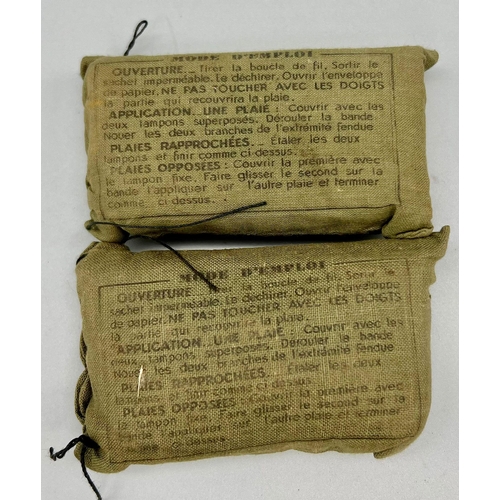 MODE D'EMPLOI
OUVERTURE._ Tirer la boucle de fil. Sortir le
sachet imperméable. Le déchirer. Ouvrir l'enveloppe
de papier. NE PAS TOUCHER AVEC LES DOIGTS
la partie qui recouvrira la plaie.
APPLICATION._UNE PLAIE : Couvrir avec les
deux tampons superposés. Dérouler la bande
Nouer les deux branches de l'extrémité fendue
PLAIES RAPPROCHÉES._ Étaler les deux
tampons et finir comme ci-dessus.
PLAIES OPPOSÉES : Couvrir la première avec
le tampon fixe. Faire glisser le second sur la
bande l'appliquer sur l'autre plaie et terminer
comme ci-dessus.
MODE D'EMPLOI
OUVERTURE._ Tirer la boucle de fil. Sortir le
sachet imperméable. Le déchirer. Ouvrir l'enveloppe
de papier. NE PAS TOUCHER AVEC LES DOIGTS
la partie qui recouvrira la plaie.
APPLICATION._UNE PLAIE : Couvrir avec les
deux tampons superposés. Dérouler la bande
Nouer les deux branches de l'extrémité fendue
PLAIES RAPPROCHÉES._ Étaler les deux
tampons et finir comme ci-dessus
PLAIES OPPOSÉES : Couvrir la première avec
le tampon fixe. Faire glisser le second sur la
bande l'appliquer sur l'autre plaie et terminer
comme ci-dessus.